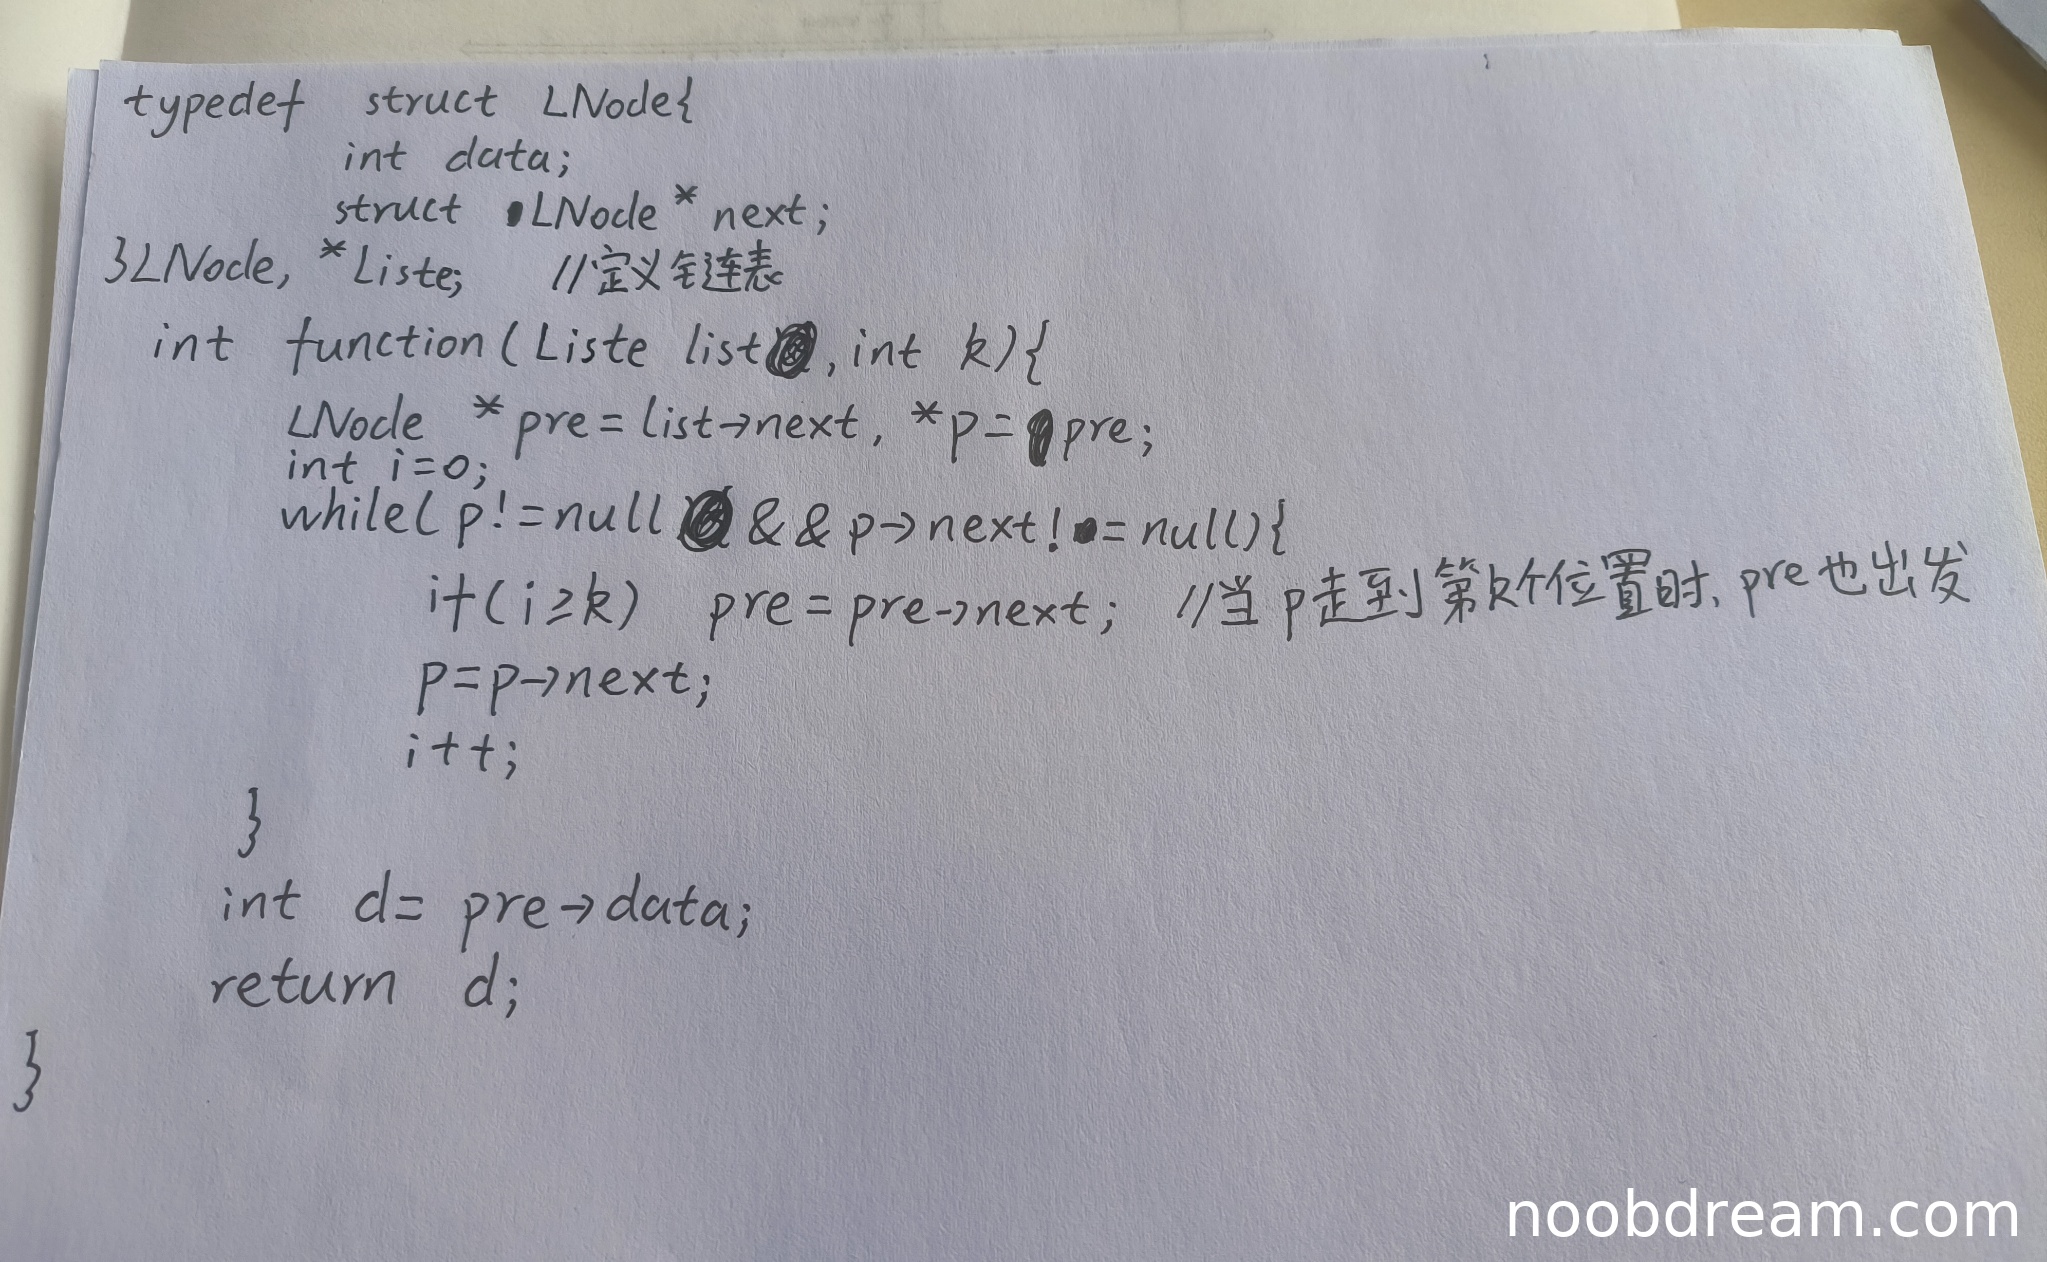 typedef struct LNode{
int data;
struct LNode * next;
}LNode, *Liste; //定义链表
int function(Liste list, int k){
LNode *pre = list→next, *p = pre;
int i=0;
while(p!=null && p→next!=null){
if(i≥k) pre = pre→next; //当p走到第k个位置时, pre也出发
p=p→next;
i++;
}
int d= pre→data;
return d;
}
noobdream.com